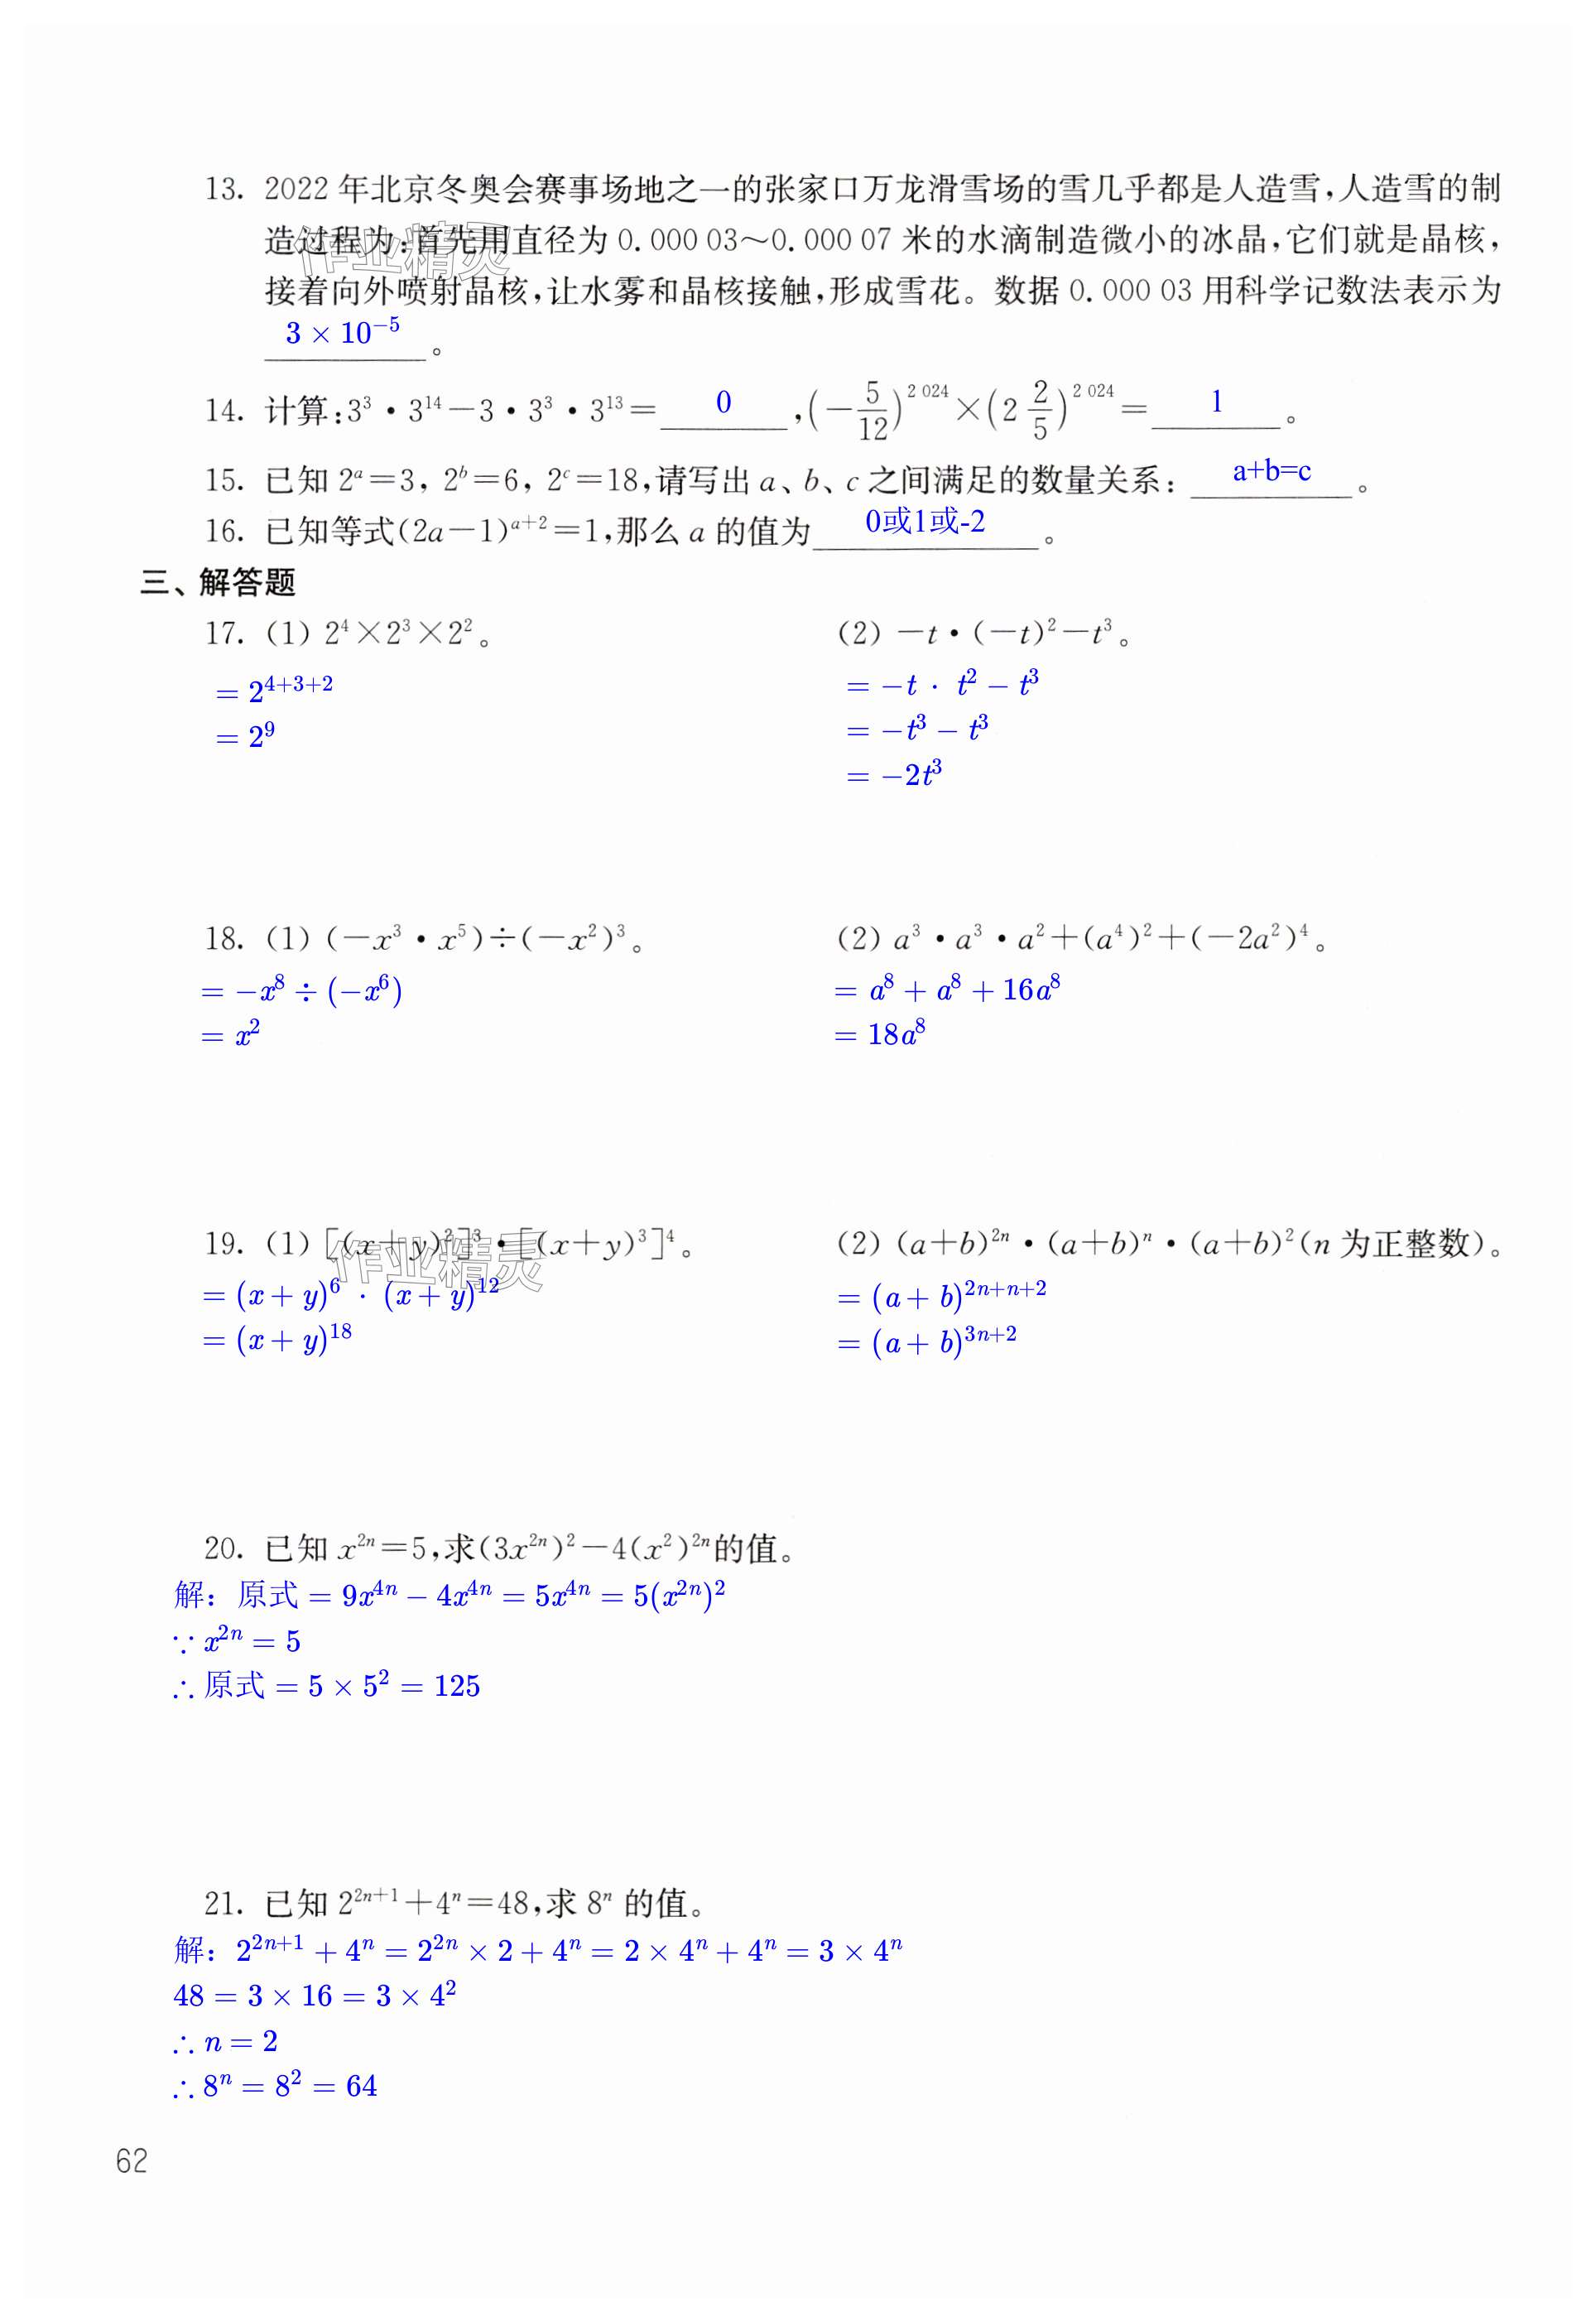 13. 2022 年北京冬奥会赛事场地之一的张家口万龙滑雪场的雪几乎都是人造雪,人造雪的制
造过程为:首先用直径为 0.000 03～0.000 07 米的水滴制造微小的冰晶,它们就是晶核,
作业精灵
接着向外喷射晶核,让水雾和晶核接触,形成雪花。数据 0.000 03 用科学记数法表示为
3 × 10⁻⁵ 。
14. 计算:3³・3¹⁴－3・3³・3¹³＝ 0 ,(－5/12)^2 024×(2 2/5)^2 024＝ 1 。
15. 已知 2ᵃ＝3, 2ᵇ＝6, 2ᶜ＝18,请写出 a、b、c 之间满足的数量关系: a+b=c 。
16. 已知等式(2a－1)^(a＋2)＝1,那么 a 的值为 0或1或-2 。
三、解答题
17. (1) 2⁴×2³×2²。
= 2^(4+3+2)
= 2⁹
(2) －t・(－t)²－t³。
= −t · t² − t³
= −t³ − t³
= −2t³
18. (1) (－x³・x⁵)÷(－x²)³。
= −x⁸ ÷ (−x⁶)
= x²
(2) a³・a³・a²＋(a⁴)²＋(－2a²)⁴。
= a⁸ + a⁸ + 16a⁸
= 18a⁸
19. (1) [(x＋y)²]³・[(x＋y)³]⁴。
作业精灵
= (x + y)⁶ · (x + y)¹²
= (x + y)¹⁸
(2) (a＋b)^(2n)・(a＋b)ⁿ・(a＋b)²(n 为正整数)。
= (a + b)^(2n+n+2)
= (a + b)^(3n+2)
20. 已知 x^(2n)＝5,求(3x^(2n))²－4(x²)^(2n)的值。
解：原式 = 9x^(4n) − 4x^(4n) = 5x^(4n) = 5(x^(2n))²
∵ x^(2n) = 5
∴ 原式 = 5 × 5² = 125
21. 已知 2^(2n＋1)＋4ⁿ＝48,求 8ⁿ 的值。
解：2^(2n+1) + 4ⁿ = 2^(2n) × 2 + 4ⁿ = 2 × 4ⁿ + 4ⁿ = 3 × 4ⁿ
48 = 3 × 16 = 3 × 4²
∴ n = 2
∴ 8ⁿ = 8² = 64
62